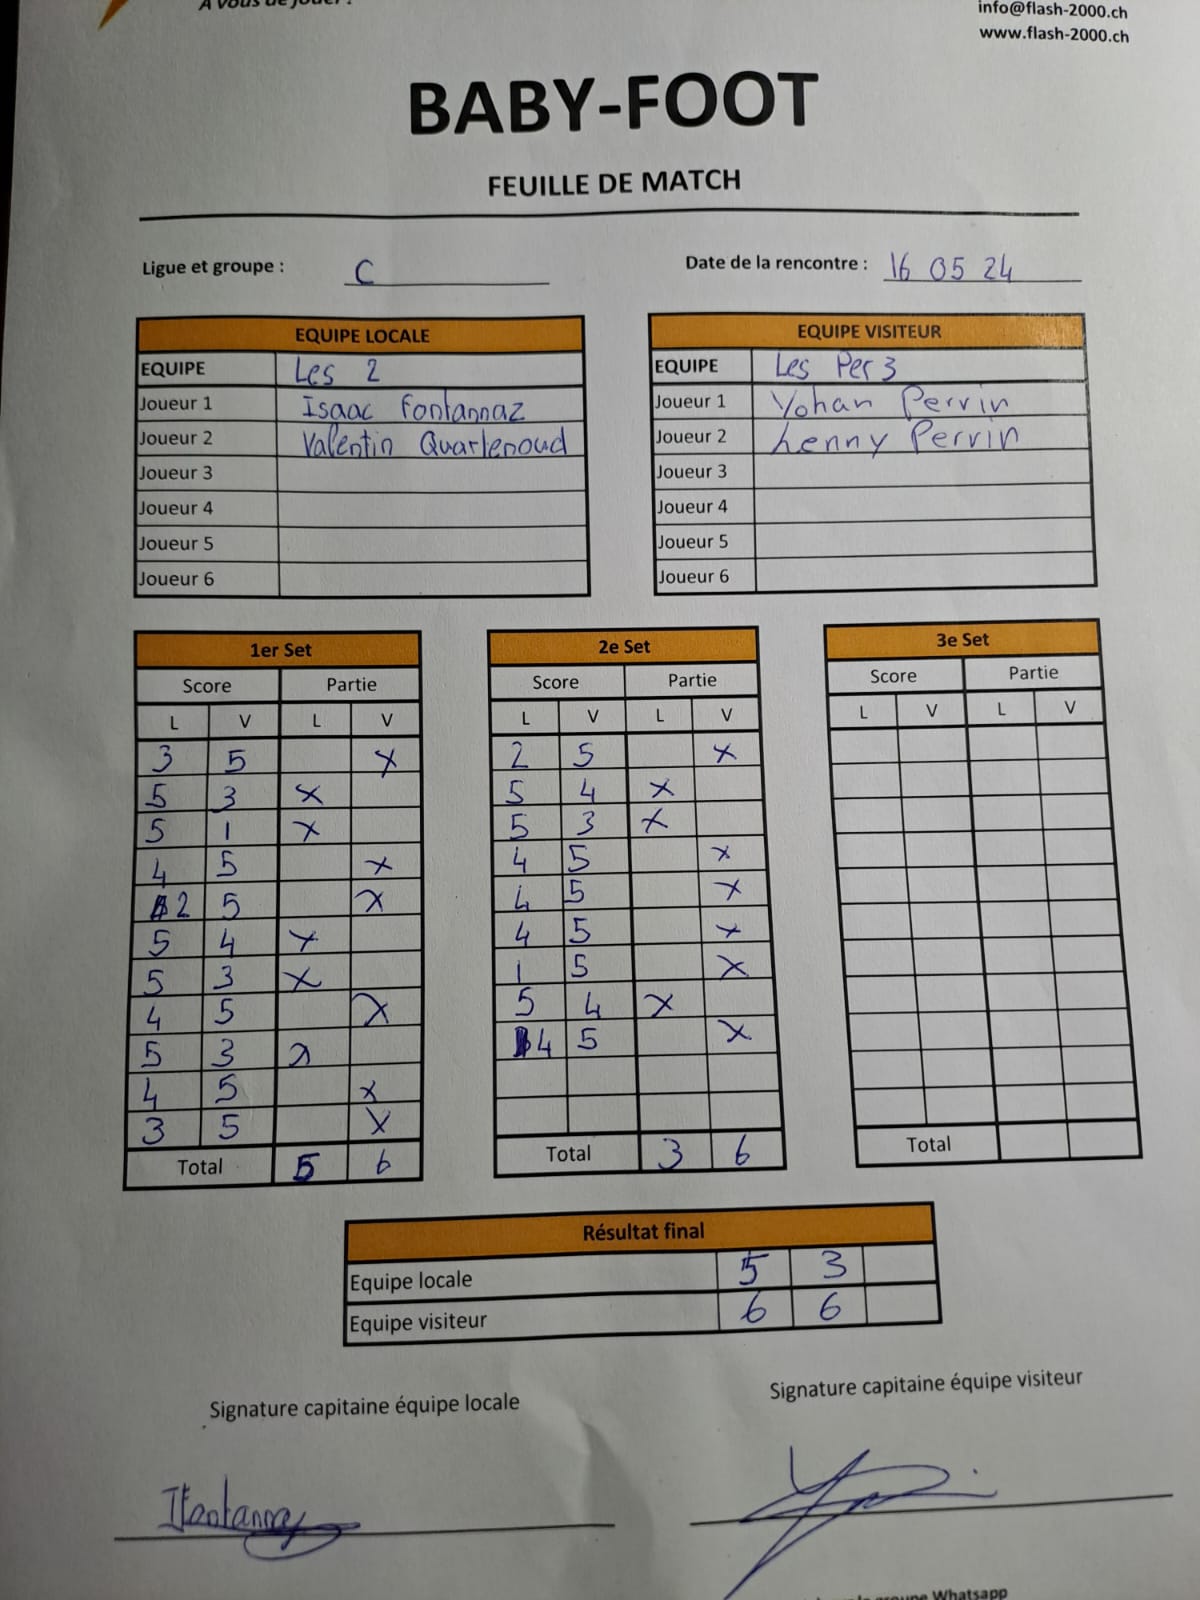 A vous de jouer !
info@flash-2000.ch
www.flash-2000.ch
BABY-FOOT
FEUILLE DE MATCH
Ligue et groupe : C
Date de la rencontre : 16 05 24
EQUIPE LOCALE
EQUIPE Les 2
Joueur 1 Isaac Fontannaz
Joueur 2 Valentin Quartenoud
Joueur 3
Joueur 4
Joueur 5
Joueur 6
EQUIPE VISITEUR
EQUIPE Les Per 3
Joueur 1 Yohan Perrin
Joueur 2 Lenny Perrin
Joueur 3
Joueur 4
Joueur 5
Joueur 6
1er Set
Score Partie
L V L V
3 5 x
5 3 x
5 1 x
4 5 x
2 5 x
5 4 x
5 3 x
4 5 x
5 3 x
4 5 x
3 5 x
Total 5 6
2e Set
Score Partie
L V L V
2 5 x
5 4 x
5 3 x
4 5 x
4 5 x
4 5 x
1 5 x
5 4 x
4 5 x
Total 3 6
3e Set
Score Partie
L V L V
Total
Résultat final
Equipe locale 5 3
Equipe visiteur 6 6
Signature capitaine équipe locale
Signature capitaine équipe visiteur
IFontannaz
groupe Whatsapp